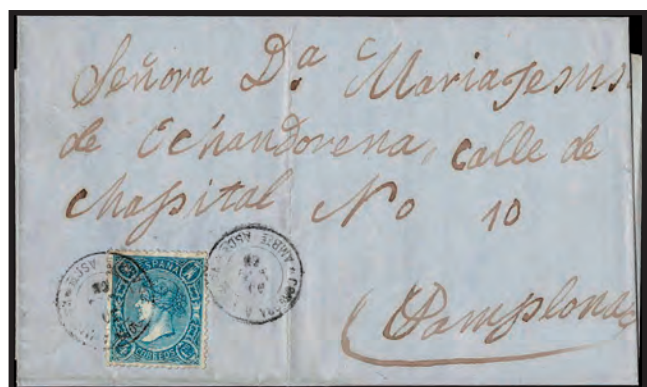 Señora D.a Maria Jesus
de Echandorena, calle de
Chapitel No 10
Pamplona
ESPAÑA
CORREOS